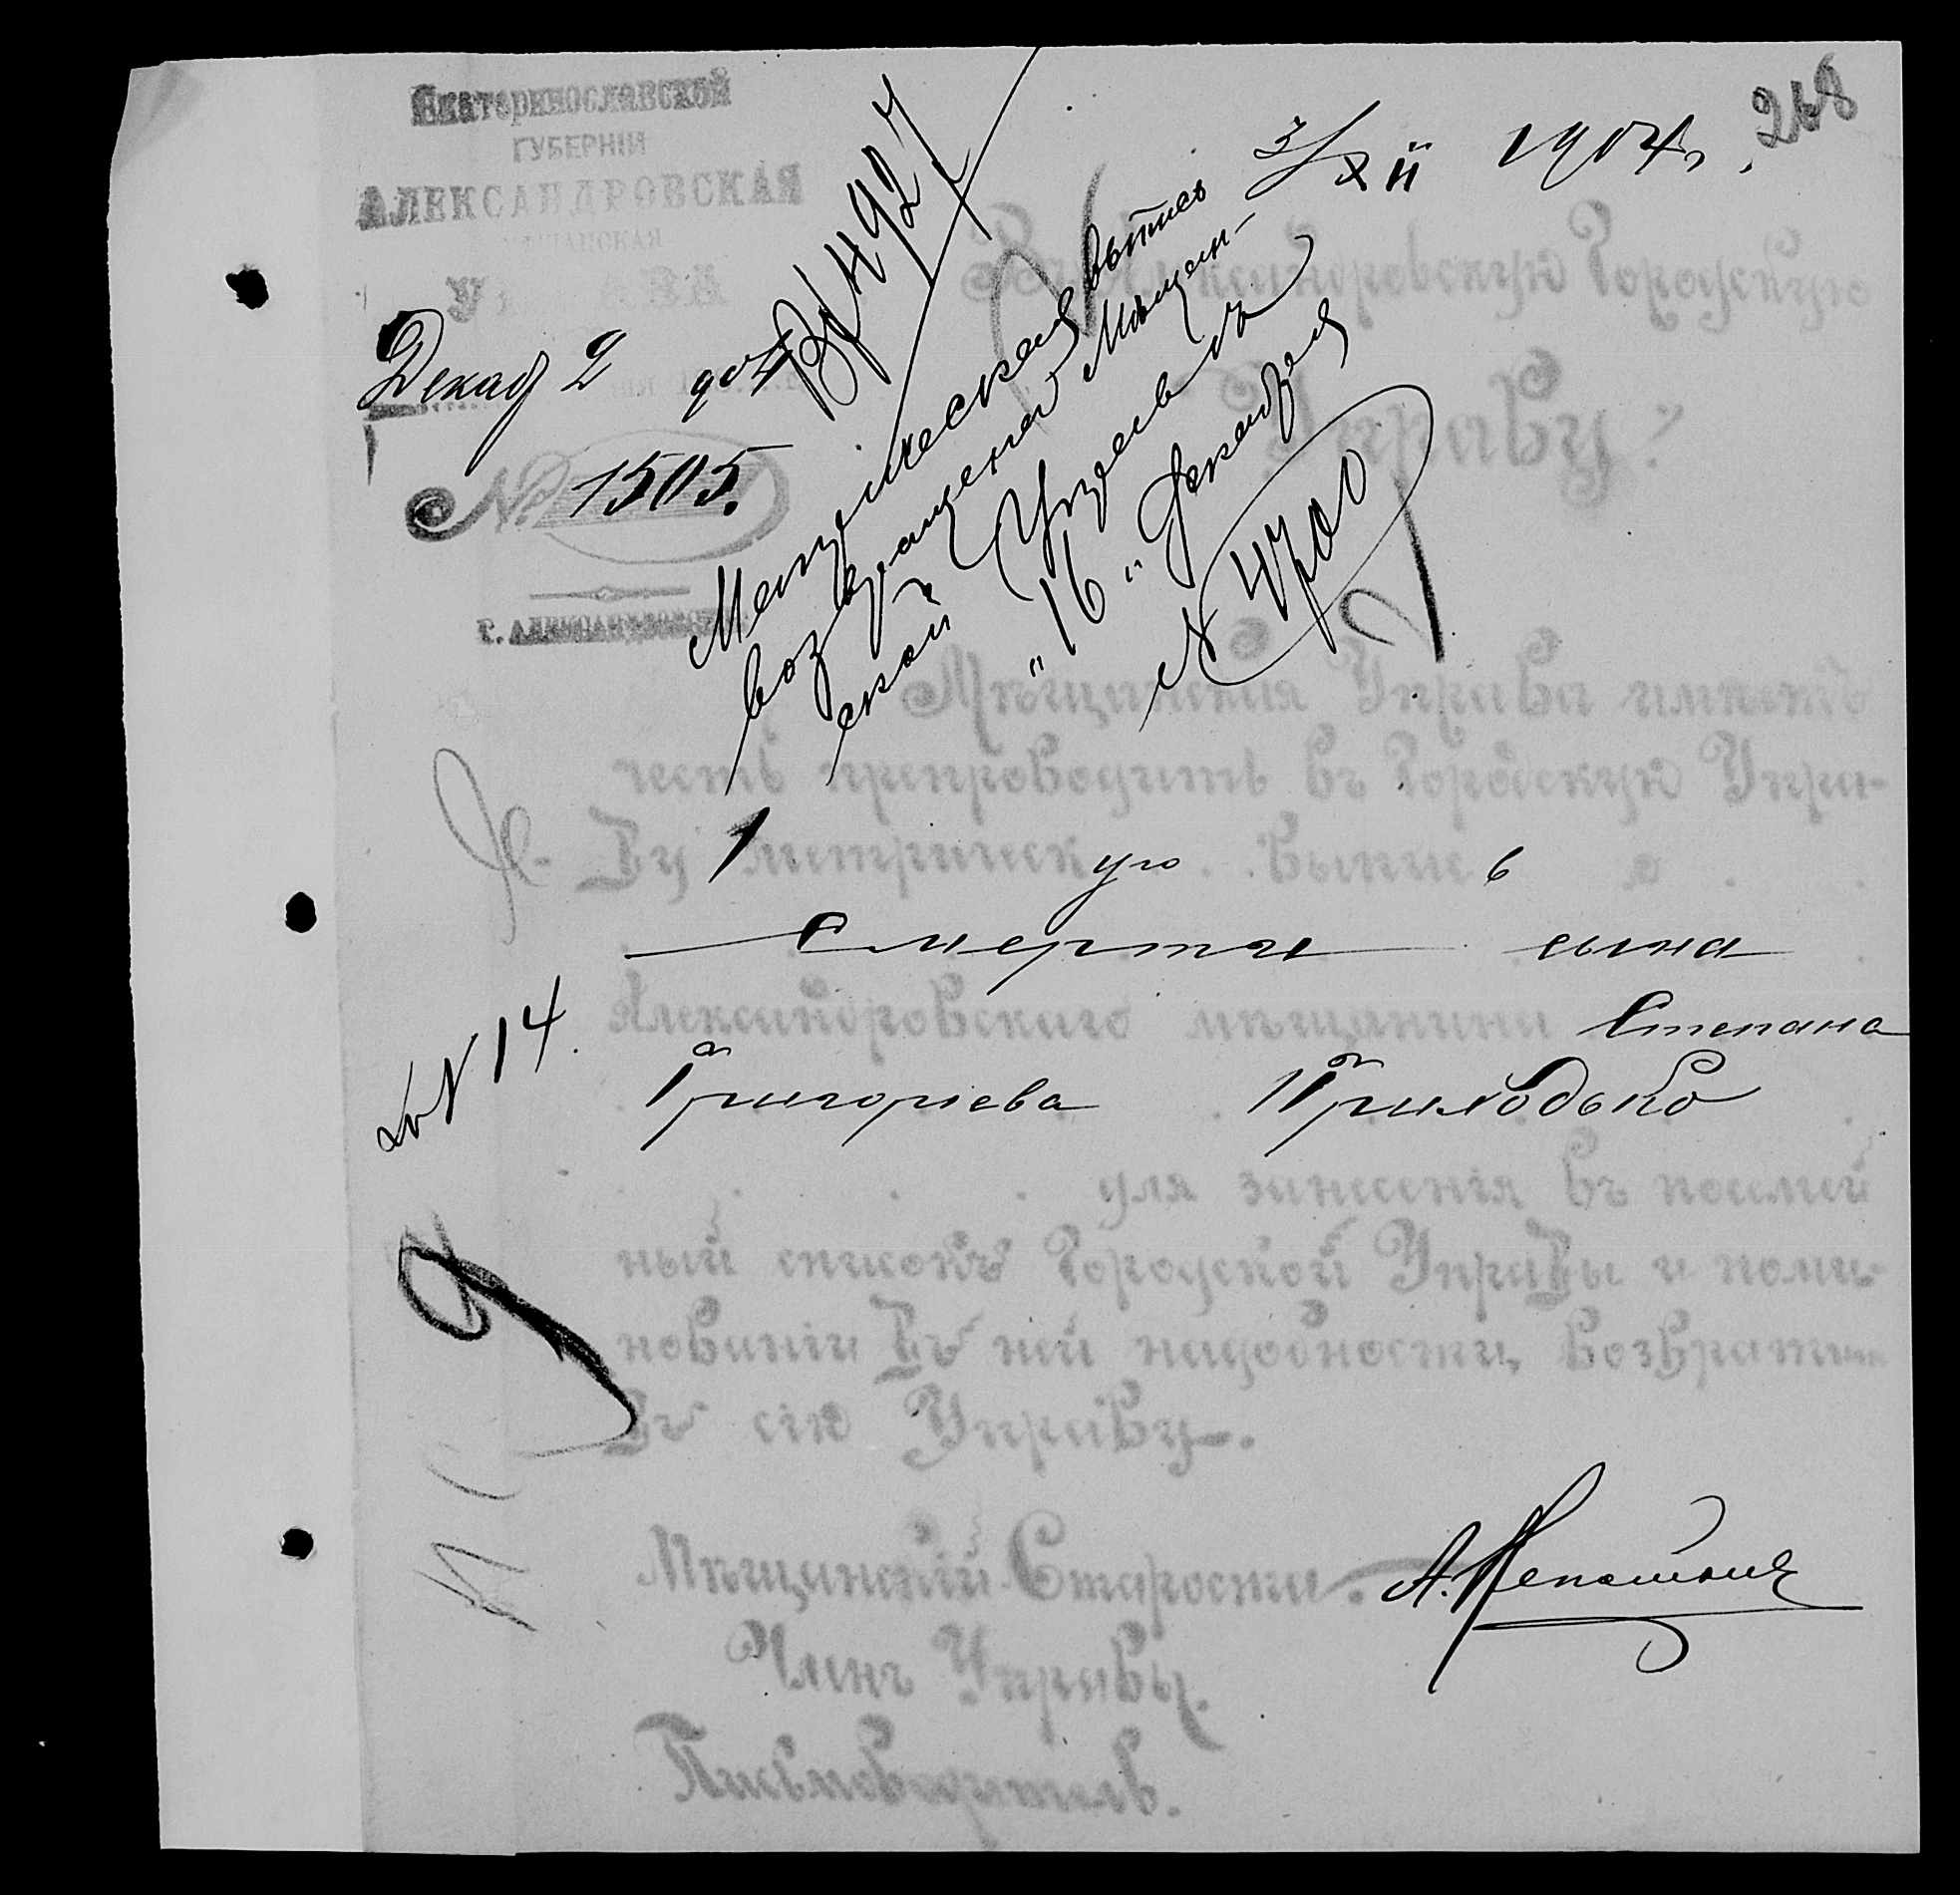 Екатеринославской
ГУБЕРНІИ
АЛЕКСАНДРОВСКАЯ
МѢЩАНСКАЯ
УПРАВА
Декаб 2 904
№ 1505.
Г. АЛЕКСАНДРОВСКЪ
248
3/XII 1904 г.
4927
Метрическая выпись
возвращена Мѣщан-
ской Управѣ
"16" Декабря
№ 4700
Въ Александровскую Городскую
Управу.
Мѣщанская Управа имѣетъ
честь препроводить въ Городскую Упра-
ву 1 метрическую выпись о
смерти сына
Александровскаго мѣщанина Степана
Григорьева Приходько
№ 14.
для занесенія въ посемей
ный списокъ Городской Управы и по ми-
нованіи въ ней надобности, возврати
въ сію Управу.
Мѣщанскій Староста
Членъ Управы.
Письмоводитель.